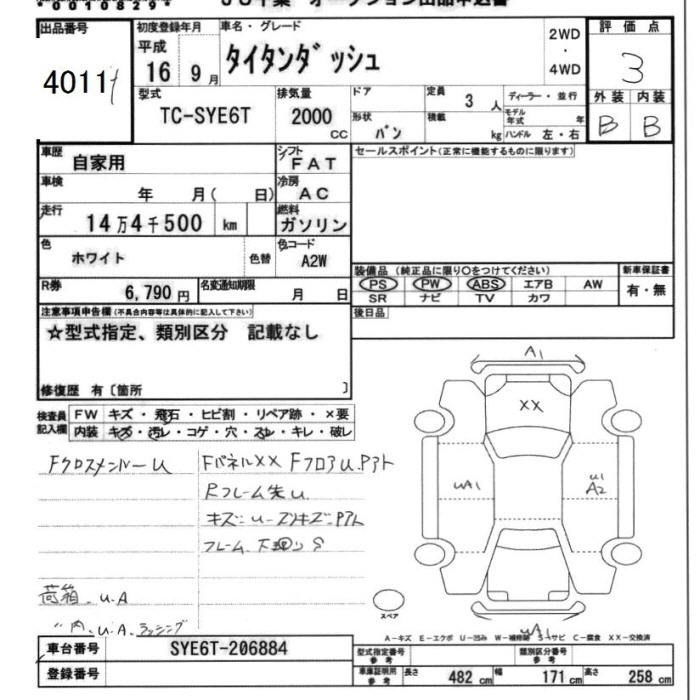 00108294
出品番号
4011
初度登録年月
平成
16 9月
車名・グレード
タイタンダッシュ
2WD
・
4WD
評価点
3
外装 内装
B B
型式
TC-SYE6T
排気量
2000
cc
ドア
定員
3 人
ディーラー・並行
形状
バン
積載
kg
モデル年式
年
ハンドル 左・右
車歴
自家用
シフト
FAT
セールスポイント(正常に機能するものに限ります)
車検
年 月( 日)
冷房
AC
走行
14万4千500 km
燃料
ガソリン
色
ホワイト
色替
色コード
A2W
装備品 (純正品に限り○をつけてください)
PS PW ABS エアB AW
SR ナビ TV カワ
新車保証書
有・無
R券
6,790円
名変通知期限
月 日
後日品
注意事項申告欄(不具合内容等は具体的に記入して下さい)
☆型式指定、類別区分 記載なし
修復歴 有〔箇所 〕
検査員記入欄
FW キズ・飛石・ヒビ割・リペア跡・×要
内装 キズ・汚レ・コゲ・穴・スレ・キレ・破レ
Fクロスメンバー U
FパネルXX FフロアU.Pアト
Rフレーム先U.
キズ:U-ズリキズ:Pアト
荷箱.U.A
〃内.U.A.ラッシング
A1
XX
UA1
U1
A2
UA1
スペア
A-キズ E-エクボ U-凹み W-補修跡 S-サビ C-腐食 XX-交換済
車台番号
SYE6T-206884
登録番号
型式指定番号
参考
類別区分番号
参考
車庫証明用
参考
長さ 482 cm 幅 171 cm 高さ 258 cm